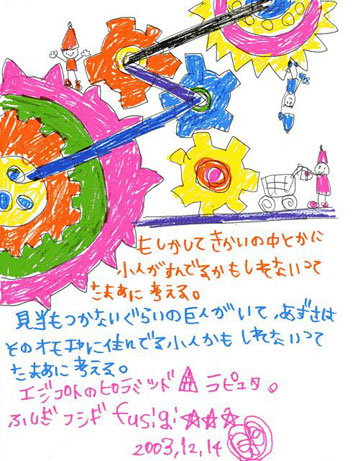 もしかしてきかいの中とかに
小人がすんでるかもしれないって
たまあに考える。
見当もつかないぐらいの巨人がいて、あずさは
そのオモチャに住んでる小人かもしれないって
たまあに考える。
エジプトのピラミッド ラピュタ。
ふしぎフシギ fusigi ☆☆☆
2003,12,14